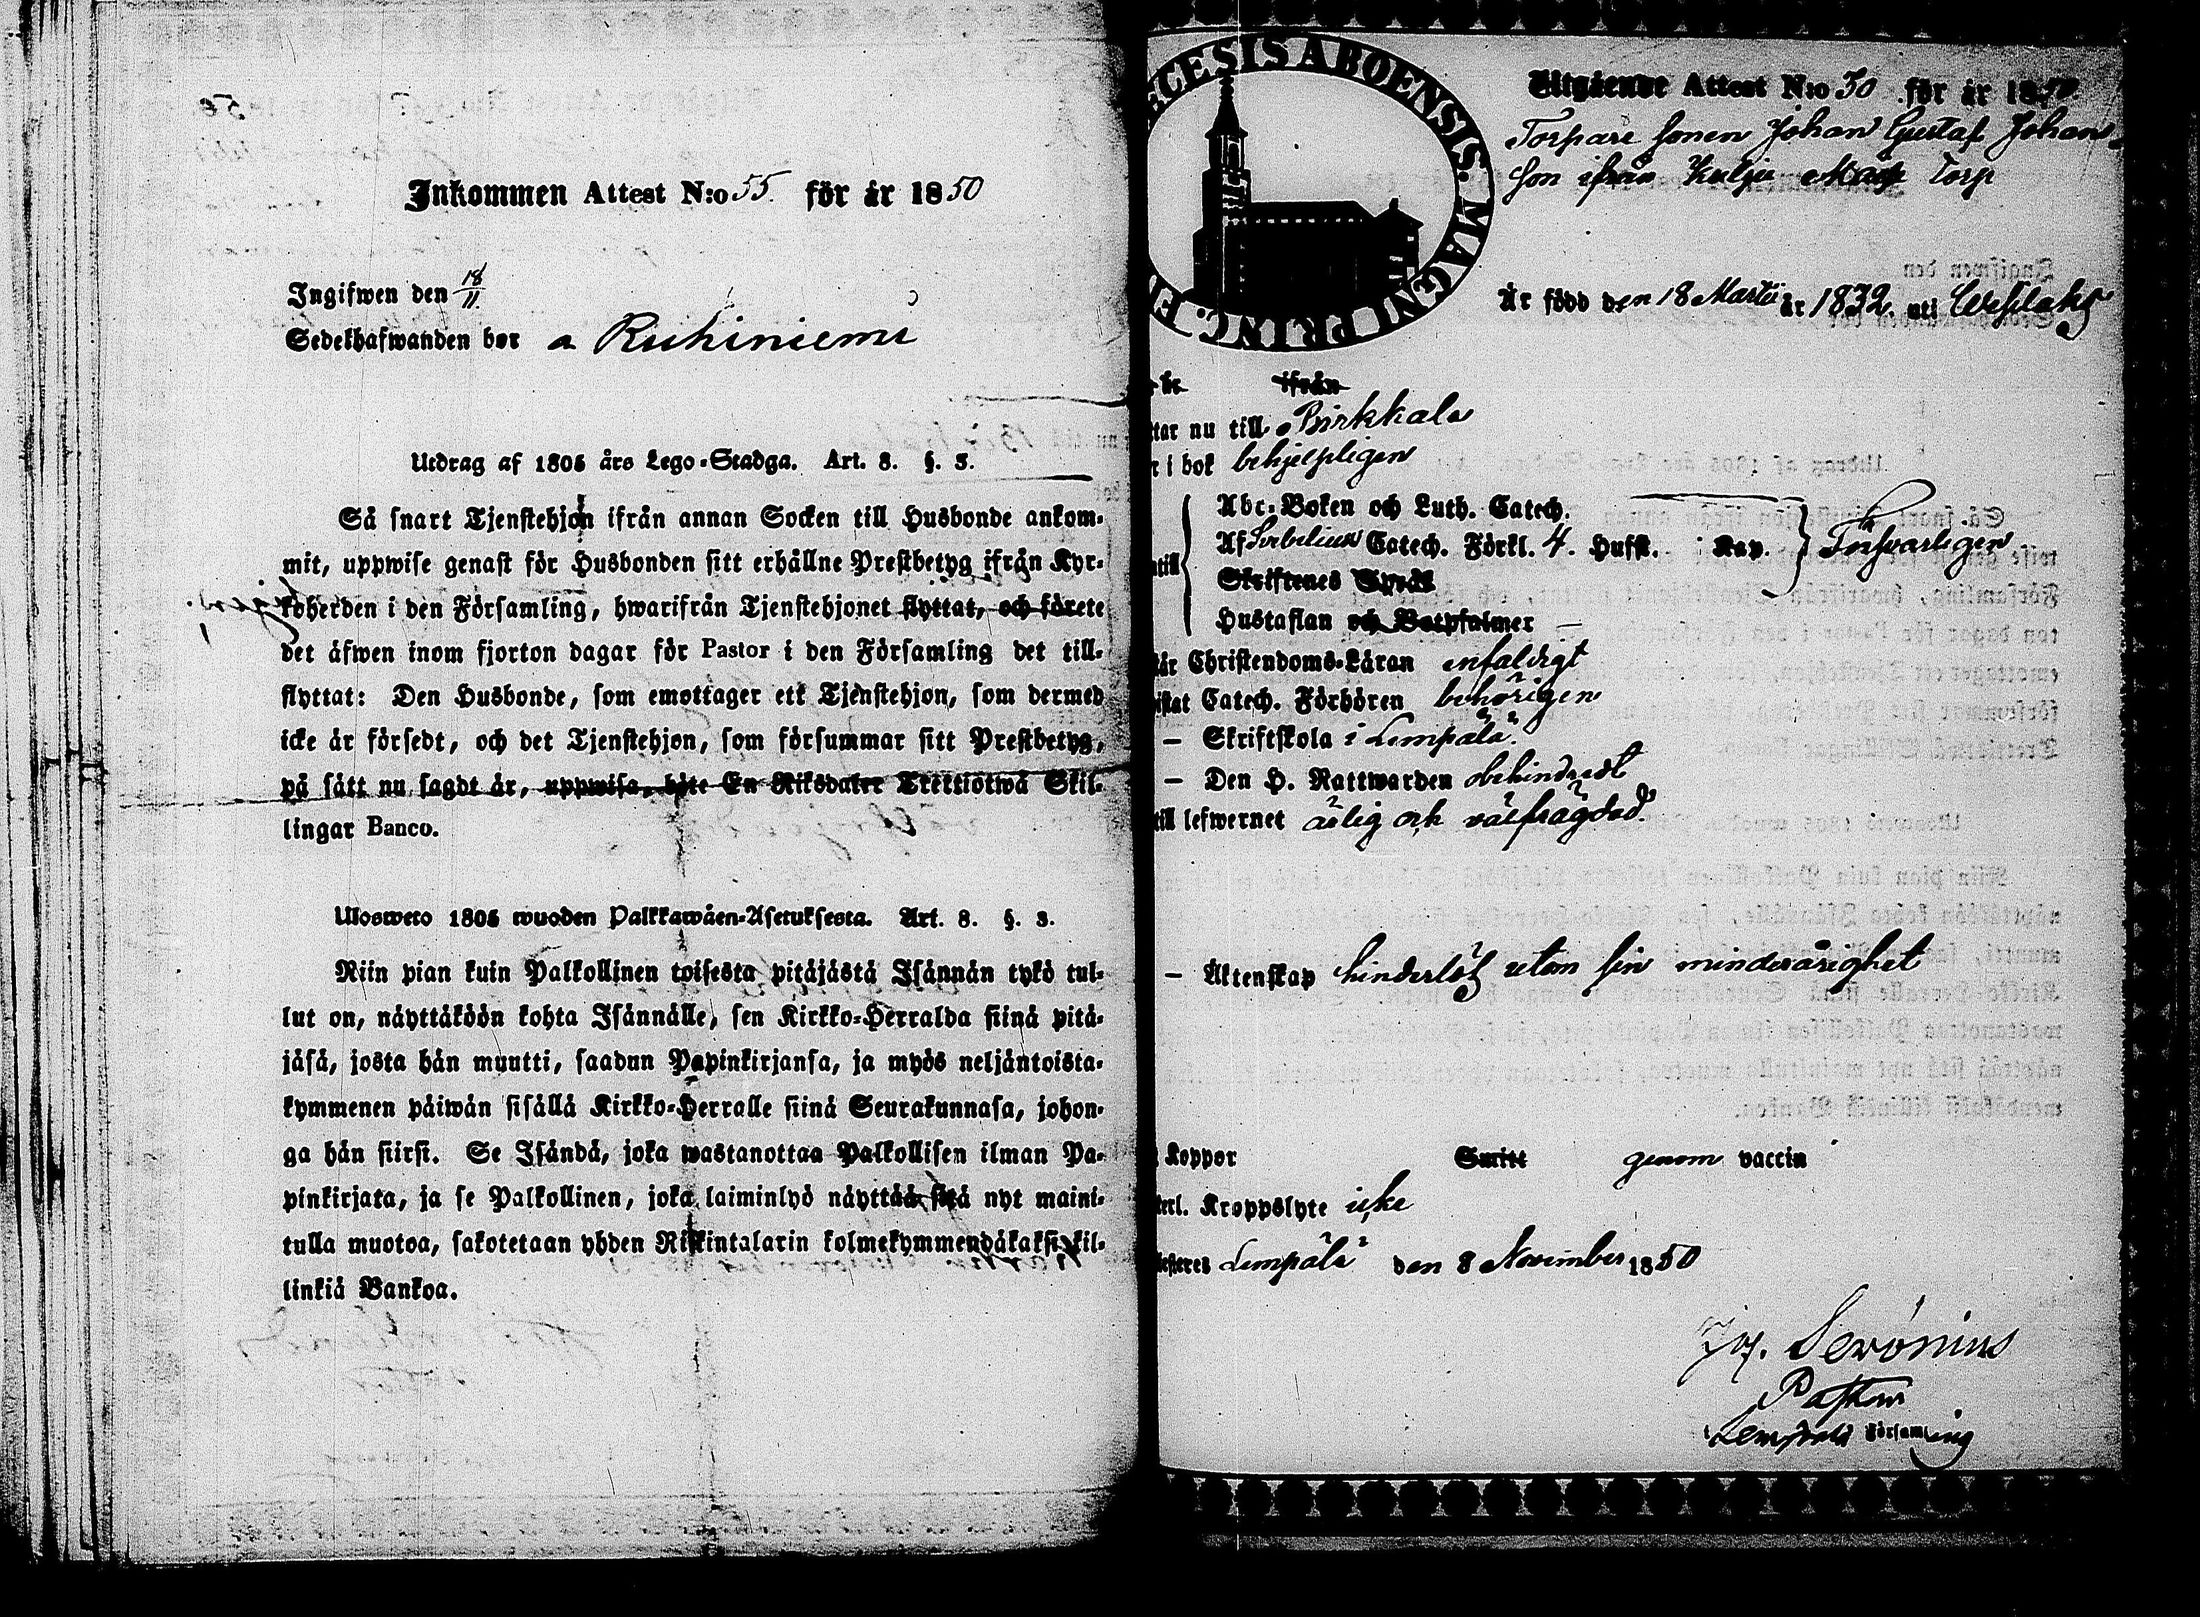 Inkommen Attest N:o 55. för år 1850
Ingifwen den 18/11.
Sedelhafwanden bor a Ruhiniemi
Utdrag af 1805 års Lego-Stadga. Art. 8. §. 3.
Så snart Tjenstehjon ifrån annan Socken till Husbonde ankom-
mit, uppwise genast för Husbonden sitt erhållne Prestbetyg ifrån Kyr-
koherden i den Församling, hwarifrån Tjenstehjonet flyttat, och förete
det äfwen inom fjorton dagar för Pastor i den Församling det till-
flyttat: Den Husbonde, som emottager ett Tjenstehjon, som dermed
icke är försedt, och det Tjenstehjon, som försummar sitt Prestbetyg,
på sätt nu sagdt är, uppwisa, böte En Riksdaler Trettiotwå Skil-
lingar Banco.
Ulosweto 1805 wuoden Palkkawäen-Asetuksesta. Art. 8. §. 3.
Niin pian kuin Palkollinen toisesta pitäjästä Isännän tykö tul-
lut on, näyttäköön kohta Isännälle, sen Kirkko-Herralda siinä pitä-
jäsä, josta hän muutti, saadun Papinkirjansa, ja myös neljäntoista-
kymmenen päiwän sisällä Kirkko-Herralle siinä Seurakunnasa, johon-
ga hän siirsi. Se Isändä, joka wastanottaa Palkollisen ilman Pa-
pinkirjata, ja se Palkollinen, joka laiminlyö näyttää sitä nyt maini-
tulla muotoa, sakotetaan yhden Riikintalarin kolmekymmendäkaksi kil-
linkiä Bankoa.
CESIS ABOENSIS. MAGNI PRINC.
Utgående Attest N:o 50 för år 1850
Torpare sonen Johan Gustaf Johans-
son ifrån Kulju Torp
Är född den 18 Martii år 1832. uti Wesilaks
ifrån
tar nu till Birkkala
r i bok behjelpligen
Abc-Boken och Luth. Catech.
Af Svebelius Catech. Förkl. 4. Hufst. Kap. Försvarligen
Skriftenes Språk
Hustaflan och Botpsalmer
år Christendoms-Läran enfaldigt
istat Catech. Förhören behörigen
— Skriftskola i Lempälä.
— Den H. Nattwarden obehindradt
till lefwernet ärlig och välfrägdad.
— Äktenskap hinderlös utom sin minderårighet
Koppor Smitt genom vaccin
terl. Kroppslyte icke
testeres Lempälä den 8 November 1850
Jos. Serónius
Pastor
i Lempälä Församling